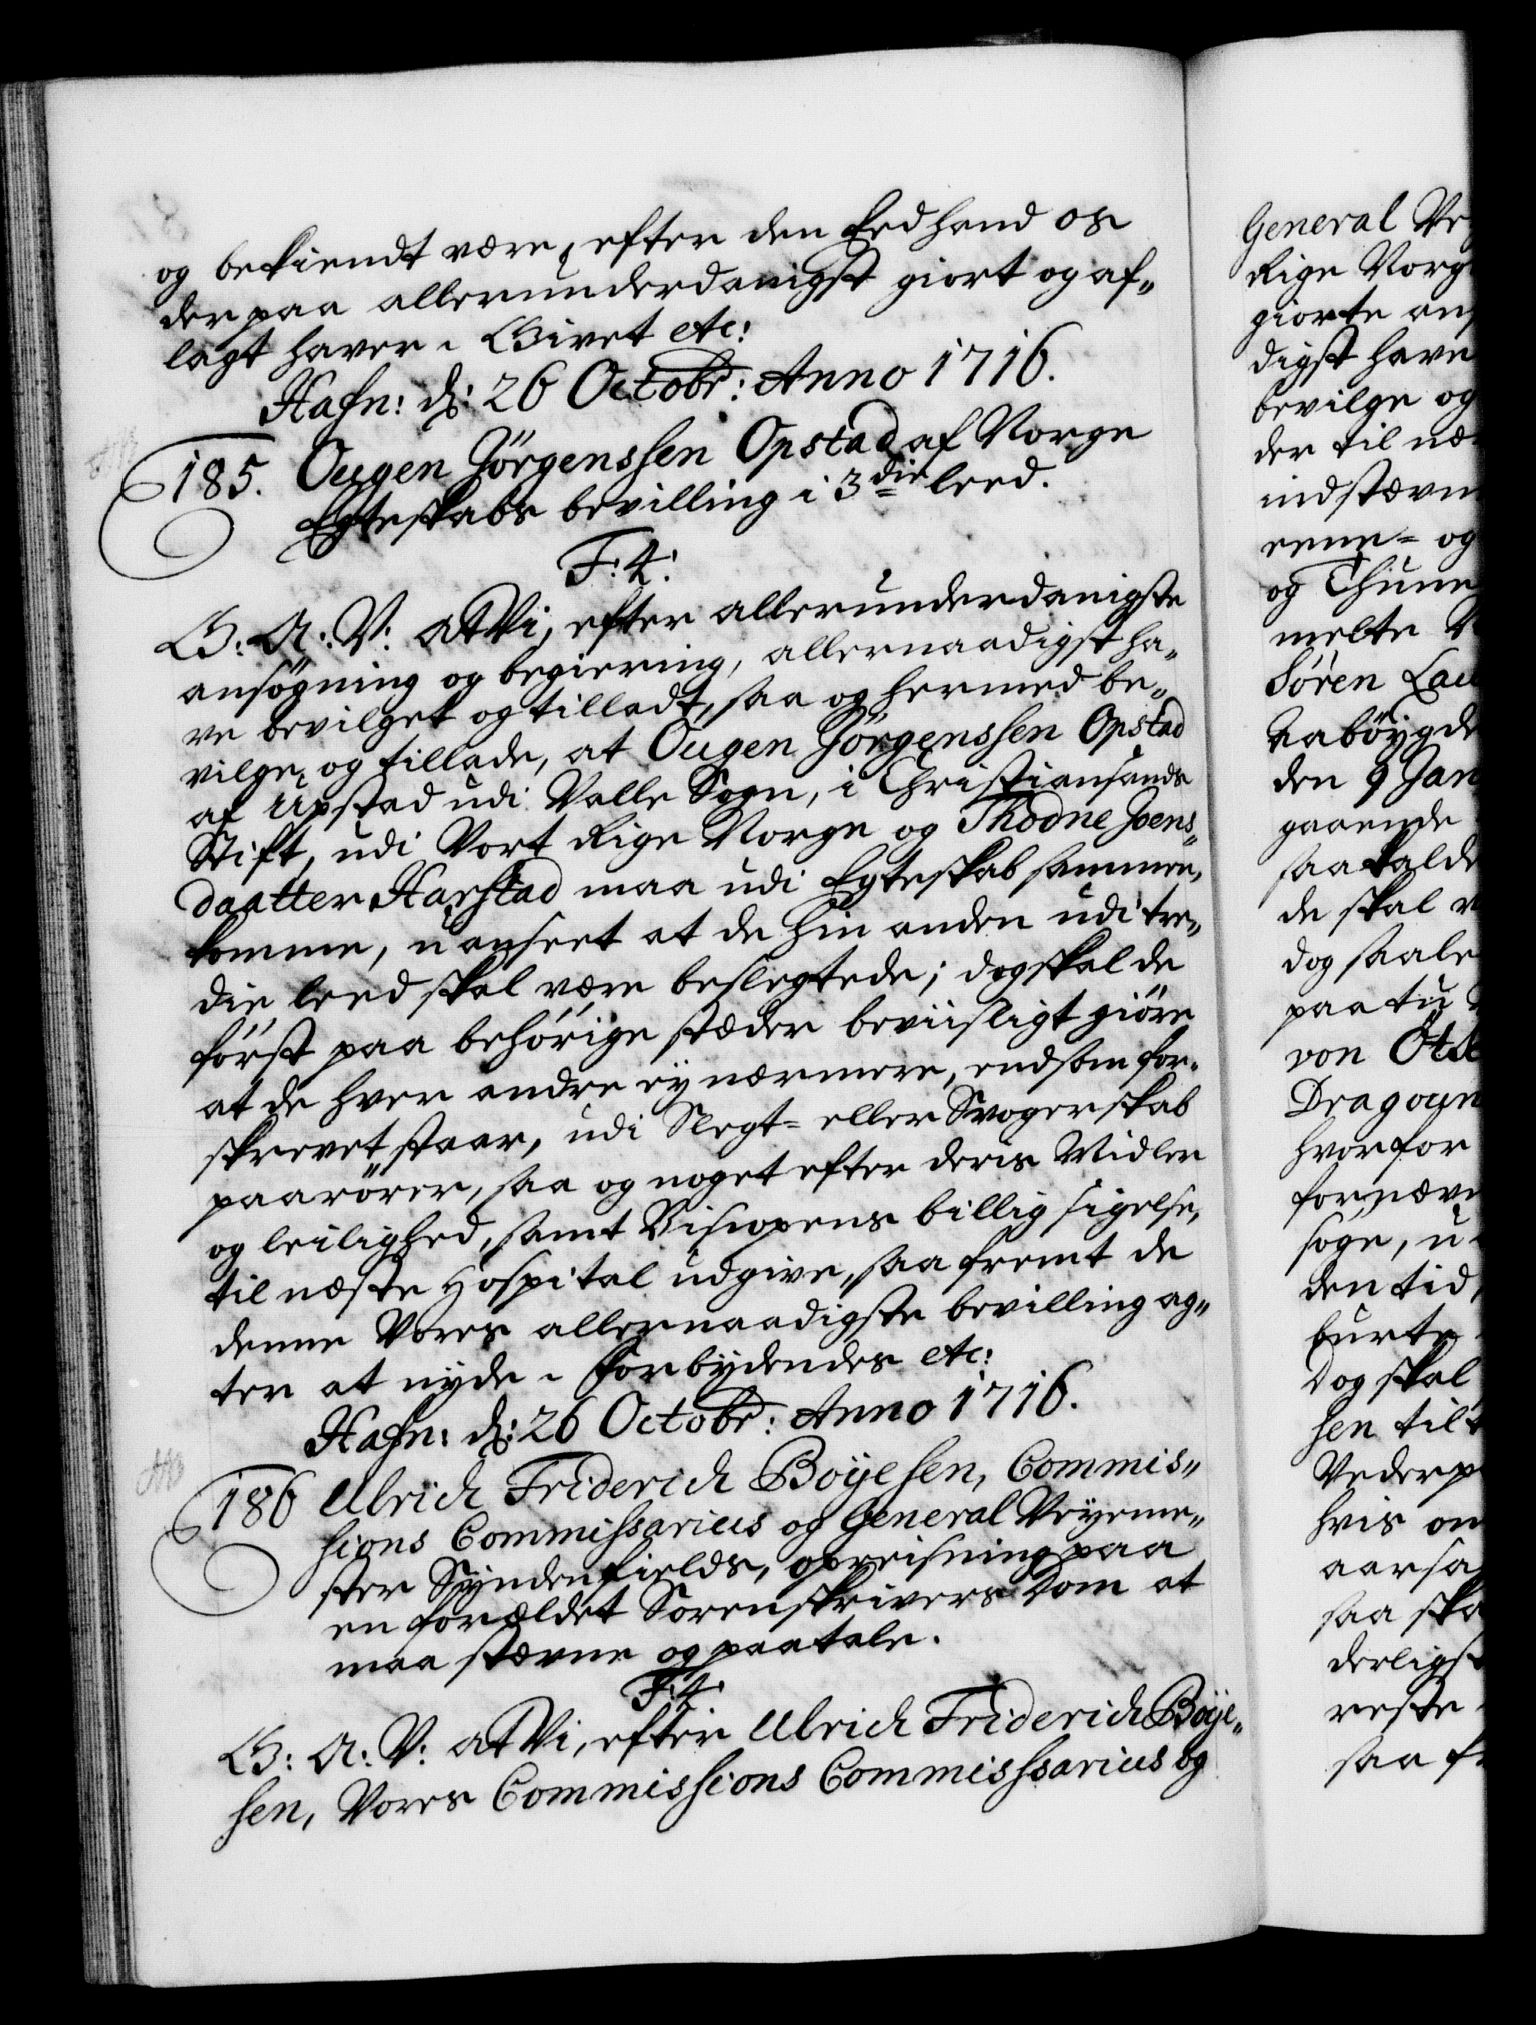 og bekiendt være, efter den Eed hand os
derpaa allerunderdanigst giort og af„
lagt haver. Givet etc:
Hafn: d: 26 Octobr: Anno 1716.
185. Ougen Jörgenssen Opstad af Norge
Egteskabs bevilling i 3die leed.
F: 4:
G: A: V: at Vi, efter allerunderdanigste
ansøgning og begiering, allernaadigst ha„
ve bevilget og tilladt, saa og hermed be„
vilge, og tillade, at Ougen Jörgenssen Opstad
af Upstad udi Valle Sogn, i Christiansands
Stift, udi Vort Rige Norge og Thodne Joens„
daatter Harstad maa udi Egteskab sammen„
komme, uanseet at de hin anden udi tre„
die leed skal være beslegtede; dog skal de
först paa behörige stæder beviisligt giöre
at de hver andre ey nærmere, end som for„
skrevet staar, udi Slegt= eller Svogerskab
paarörer, saa og noget efter deris Midler
og leilighed, samt Biscopens billig sigelse,
til næste Hospital udgive, saa fremt de
denne Vores allernaadigste bevilling ag„
ter at nyde. Forbydendes etc:
Hafn: d: 26 Octobr: Anno 1716.
186 Ulrich Friderich Boÿesen, Commis„
sions Commissarius og General Veyeme„
ster Syndenfields, opreisning paa
en forældet Sorenskrivers Dom at
maa stævne og paatale.
F: 4:
G: A: V: at Vi, efter Ulrich Friderich Boÿe„
sen, Vores Commissions Commisssarius og
General Ve
Rige Norg
giorte an
digst have
bevilge og
der til næ
indstævn
eene= og
og Thune
melte
Sören Lau
Aabÿgde
den 9 Jan
gaaende
saakalde
de skal
dog saale
paa tu
von Öt
Dragoun
hvorfor
fornævn
söge, u
den tid,
burte
Dog skal
sen til
Vederp
hvis on
aarsa
saa ska
derligst
reste
saa f